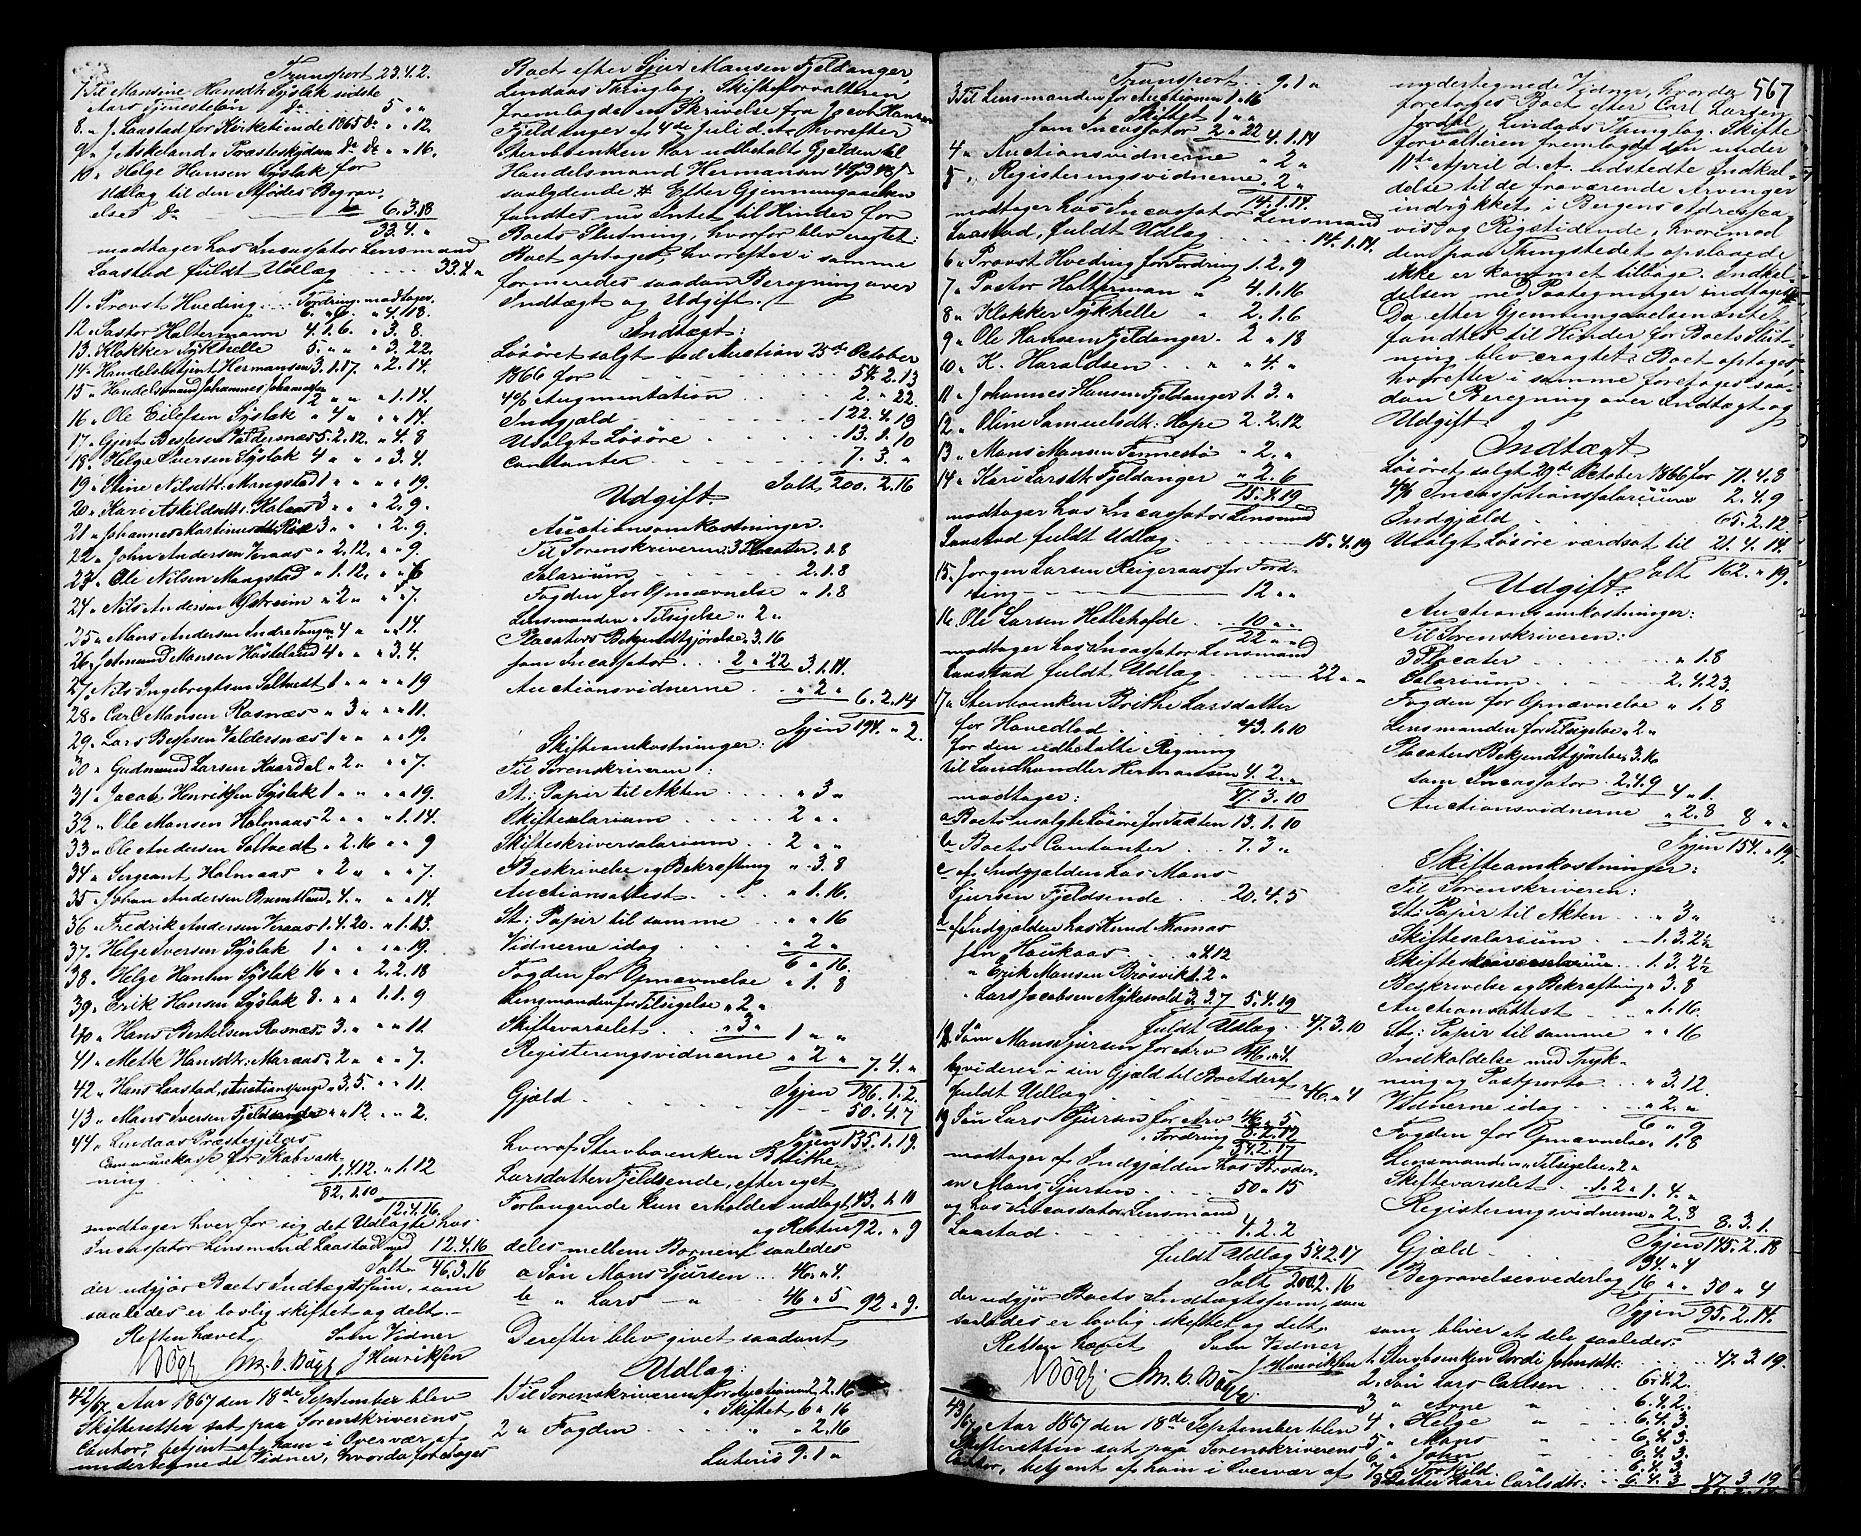 Transport 23.4.2.
7 Til Mansine Hansdtr Syslak sidste
Aars Tjenesteløn do 5 " "
8. " J. Laastad for Kirketiende 1865 do " " 12.
9 " J. Askeland " Præsteskyds do do " " 16.
10 " Helge Hansen Syslak for
Udlæg til den Afdødes Begrav-
else do 6.3.18
33.4. "
modtager hos Incassator Lensmand
Laastad fuldt Udlæg 33.4 "
11 " Provst Hveding Fordring modtager
12 " Pastor Haltermann 4.1.6. " 3. 8.
13. " Klokker Tykhelle 5. " " " 3. 22.
14 " Handelsbetjent Hermansen 3.1.17. " 2.14.
15 " Handelsmand Johannes Johannesen
2 " " " 1.14.
16 " Ole Eilefsen Syslak " 4 " " " 14.
17 " Gjert Bessesen Valdersnæs 5.2.12. " 4. 8
18 " Helge Iversen Syslak 4 " " " 3.4.
19 " Stine Nilsdtr: Mangstad 1 " " " " 19.
20 " Kari Askildsdtr: Holans 3 " " " 2. 9.
21 " Johannes Rasmus 3 " " " 2. 9.
22 " John Andersen Veraas " 2.12. " " 9.
23 " Ole Nilsen Mangstad " 1.12. " " 6
24 " Nils Andersen Ystreim " 2 " " " 7.
25 " Mans Andersen Indretangen 4 " " " 14.
26 " Mansen Høskeland 4 " " 3.4.
27 " Nils Ingebrigtsen Soltvedt 1 " " " " 19
28 " Carl Mansen Rasnæs " 3 " " " 11.
29 " Lars Bessesen Valdersnæs 1 " " " " 19.
30 " Gudmund Larsen Haardal " 2 " " " 7.
31 " Jacob Henriksen Syslak 1 " " " " 19.
32 " Ole Mansen Holmaas 2 " " " 1.14.
33 " Ole Andersen Soltvedt " 2.16 " " 9
34 " Sergeant Holmaas " 2 " " " 7.
35 " Johan Andersen Bruntland " 4. " " " 14.
36 " Fredrik Andersen Veraas 1.4.20. " 1.13.
37 " Helge Iversen Syslak 1 " " " " 19.
38 " Helge Hansen Syslak 16 " " 2.2.18
39 " Erik Hansen Syslak 8. " " 1.1.9
40 " Hans Bertelsen Rasnæs " 3. " " " 11
41 " Mette Hansdtr: Maraas " 2 " " " 7.
42 " Hans Laastad, Auctionspenge " 3.5. " " 11.
43 " Mans Iversen Fjeldsende " " 12 " " 2.
44 " Lindaas Præstegjelds
Communekasse for Skabvask-
ning 1.4.12. " 1.12
82.1.10
12.4.16.
modtager hver for sig det Udlagte hos
Incassator Lensmand Laastad med 12.4.16
Ialt 46.3.16
der udgjør Boets Indtægtssum, som
saaledes er lovlig skiftet og delt.
Retten hævet. Som Vidner
M. C. Bøgh J Henriksen
42/67. Aar 1867 den 18de September blev
Skifteretten sat paa Sorenskriverens
Contor, betjent af ham i Overvær af
undertegnede Vidner, hvorda foretoges
Boet efter Sjur Mansen Fjeldanger
Lindaas Thinglag. Skifteforvalteren
fremlagde en Skrivelse fra Jacob Hansen
Fjeldanger af 4de Juli d. A., hvorefter
Sterboenken har udbetalt Gjelden til
Handelsmand Hermansen
saalydende # Efter Gjennemgaaelsen
fandtes nu Intet til Hinder for
Boets Slutning, hvorfor blev eragtet:
Boet optages, hvorefter i samme
formeredes saadan Beregning over
Indtægt og Udgift.
Indtægt:
Løsøret solgt ved Auction 25de October
1866 for 54.2.13
4% Augmentation 2. " 22.
Indgjæld 122.4.19
Usolgt Løsøre 13.1.10
Contanter 7.3. "
Ialt 200.2.16
Udgift.
Auctionsomkostninger.
Til Sorenskriveren: 3 Placater " 1.8
Salarium 2.1.8
Fogden for Opnævnelse " 1.8
Lensmanden " Tilsigelse " 2 "
Placaters Bekjendtgjørelse " 3.16
som Incassator 2 " 22 3.1.14.
Auctionsvidnerne " 2 " 6.2.14
Igjen 194. " 2.
Skifteomkostninger:
Til Sorenskriveren:
St: Papir til Akten " 3 "
Skiftesalarium 2 " "
Skifteskriversalarium 2 " "
Beskrivelse og Bekræftning " 3.8
Auctionsattest " 1.16.
St: Papir til samme " " 16
Vidnerne idag " 2 "
6 " 16.
Fogden for Opnævnelse " 1.8
Lensmanden for Tilsigelse " 2 "
Skiftevarselet " 3 " 1 " "
Registeringsvidnerne " 2 " 7.4. "
Igjen 186.1.2.
Gjæld 50.4.7
Igjen 135.1.19.
hvoraf Sterboenken Brithe
Larsdatter Fjeldsende, efter eget
Forlangende kun erholder udlagt 43.1.10
og Resten 92. " 9
deles mellem Børnene saaledes
a Søn Mans Sjursen 46 " 4.
b " Lars " 46 " 5 92 " 9.
Derefter blev givet saadant
Udlæg:
1 Til Sorenskriveren for Auctionen 2.2.16
" Skiftet 6 " 16
2 " Fogden " 2.16
Lateris 9.1 "
567
Transport 9.1 "
3 Til Lensmanden for Auctionen 1.16
Skiftet 1 " "
som Incassator 2 " 22 4.1.14
4 " Auctionsvidnerne " 2 "
5 " Registeringsvidnerne " 2 "
14.1.14.
modtager hos Incassator Lensmand
Laastad, fuldt Udlæg 14.1.14.
6 " Provst Hveding for Fordring 1.2.9
7 " Pastor Halterman " 4.1.16
8 " Klokker Tykhelle " 2.1.6
9 " Ole Hansen Fjeldanger 2 " 18
10 " K. Haraldsen " " 4. "
11 " Johannes Hansen Fjeldanger 1.3. "
12 " Oline Samuelsdtr: Hope 2.2.12
13 " Mans Mansen Fennestø " 2. "
14 " Kari Larsdtr Fjeldanger " 2.6
15.4.19
modtager hos Incassator Lensmand
Laastad fuldt Udlæg 15.4.19
15. " Jørgen Larsen Reigeraas for Ford-
ring 12 " "
16. Ole Larsen Hellehofde 10 " "
22 " "
modtager hos Incassator Lensmand
Laastad fuldt Udlæg 22 " "
17 " Sterboenken Brithe Larsdatter
for Hovedlod 43.1.10
for den udbetalte Regning
til Landhandler Hermansen 4.2. "
47.3.10
modtager:
a Boets usolgte Løsøre for Taxten 13.1.10
b. Boets Contanter 7.3 "
c. af Indgjælden hos Mans
Sjursen Fjeldsende 20.4.5
d. af Indgjælden hos Knud Thomas-
sen Haukaas " 4.12
" Erik Mansen Brosvik 1.2 "
" Lars Jacobsen Mykesvold 3.3.7 5.4.19
fuldt Udlæg 47.3.10
18. Søn Mans Sjursen for Arv 46. " 4.
kviderer i sin Gjæld til Boet deraf
fuldt Udlæg 46. " 4
19 Søn Lars Sjursen for Arv 46 " 5
" Fordring 8.2.12
54.2.17
modtager af Indgjælden hos Broder-
en Mans Sjursen 50 " 15
og hos Incassator Lensmand
Laastad 4.2.2
fuldt Udlæg 54.2.17
Ialt 200.2.16
der udgjør Boets Indtægtssum, som
saaledes er lovlig skiftet og delt.
Retten hævet Som Vidner
M. C. Bøgh J Henriksen
43/67. Aar 1867 den 18de September blev
Skifteretten sat paa Sorenskriverens
Contor, betjent af ham i Overvær af
undertegnede Vidner, hvorda
foretoges Boet efter Carl Larsen
Lindaas Thinglag. Skifte-
forvalteren fremlagde den under
11te April d. A. udstedte Indkal-
delse til de fraværende Arvinger
indrykket i Bergens Adresseavis
og Rigstidende, hvorimod
den paa Thingstedet opslaaede
ikke er kommet tilbage. Indkal-
delsen med Paategninger indtages #
Da efter Gjennemgaaelsen Intet
fandtes til Hinder for Boets Slut-
ning blev eragtet: Boet optages,
hvorefter i samme foretages saa-
dan Beregning over Indtægt og
Udgift
Indtægt
Løsøret solgt 29de October 1866 for 71.4.8
4% Incassationssalarium 2.4.9
Indgjæld 65.2.12.
Usolgt Løsøre værdsat til 21.4.14.
Ialt 162. " 19.
Udgift.
Auctionsomkostninger:
Til Sorenskriveren:
3 Placater " 1.8
Salarium 2.4.23.
Fogden for Opnævnelse " 1.8
Lensmanden for Tilsigelse " 2 "
Placaters Bekjendtgjørelse " 3.16
som Incassator 2.4.9 4 " 1.
Auctionsvidnerne " 2.8 8 " "
Igjen 154. " 19.
Skifteomkostninger:
Til Sorenskriveren:
St: Papir til Akten " 3 "
Skiftesalarium 1.3.2½
Skifteskriversalarium 1.3.2½
Beskrivelse og Bekræftning " 3.8
Auctionsattest " 1.16.
St: Papir til samme " " 16
Indkaldelse med Tryk-
ning og Postporto " 3.12.
Vidnerne idag " 2. "
6 " 9
Fogden for Opnævnelse " 1.8
Lensmanden " Tilsigelse " 2 "
Skiftevarselet 1.2 " 1.4. "
Registeringsvidnerne " 2.8 8.3.1.
Igjen 145.2.18
Gjæld 34. " 4
Begravelsesvederlag 16 " " 50 " 4
Igjen 95.2.14.
som bliver at dele saaledes:
1. Sterboenken Dordi Johnsdtr: 47.3.19.
2. Søn Lars Carlsen 6.4.2.
3 " Arne " 6.4.2.
4 " Helge " 6.4.3.
5 " Mons " 6.4.3.
6 " John " 6.4.3.
7 " Torkild " 6.4.3.
8 Datter Kari Carlsdtr: 6.4.3 47.3.19